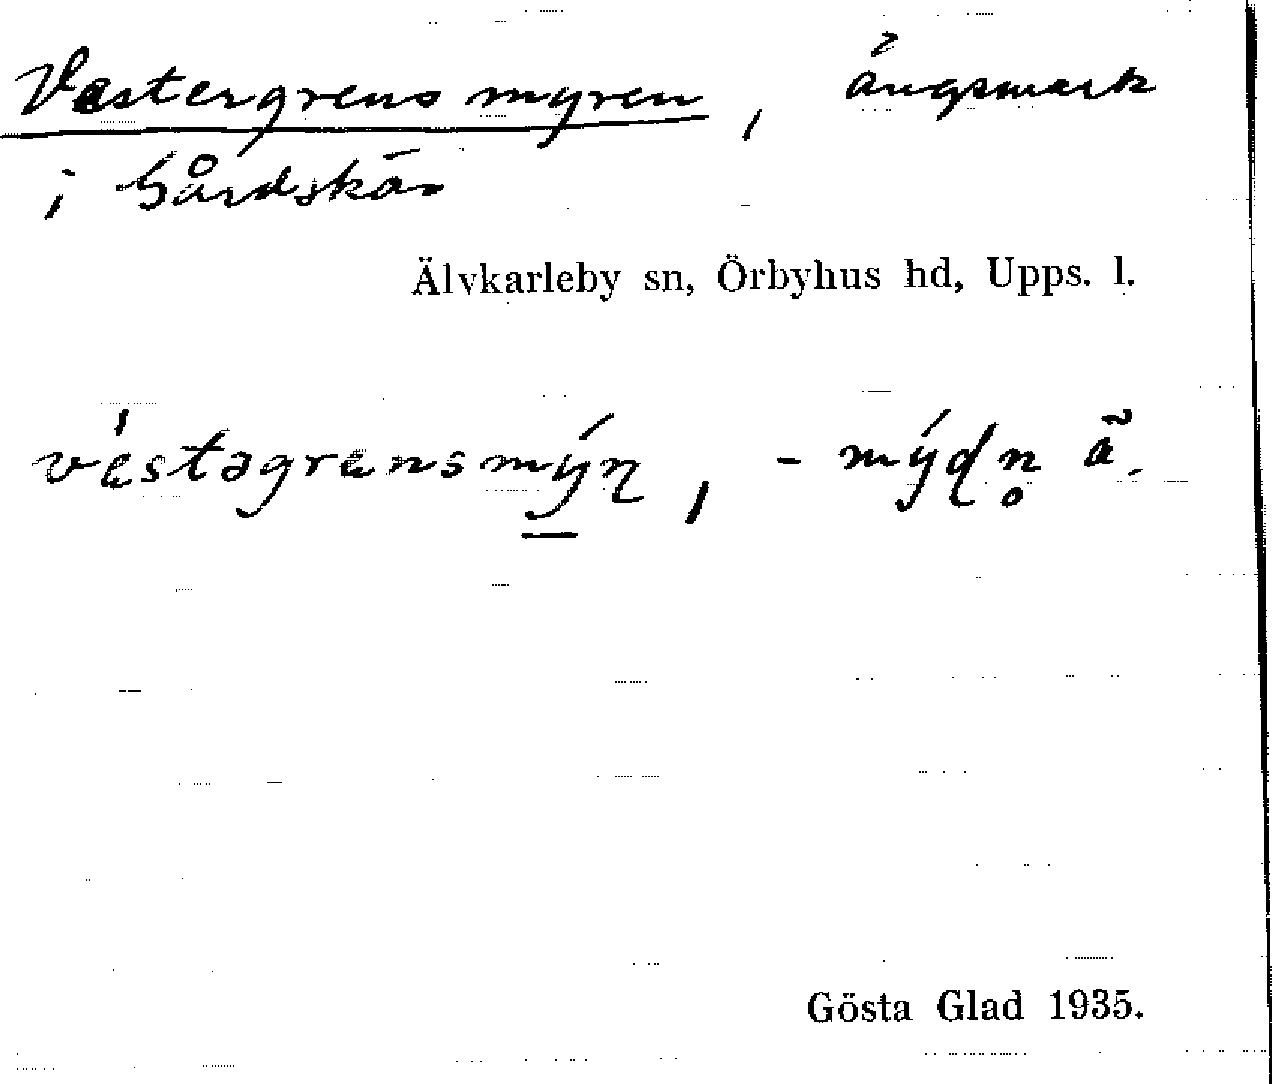 Vestergrens myren, ängsmark
i Gårdskär
Älvkarleby sn, Örbyhus hd, Upps. l.
véstəgrensmýɳ, -mýɖn̥ ã.
Gösta Glad 1935.